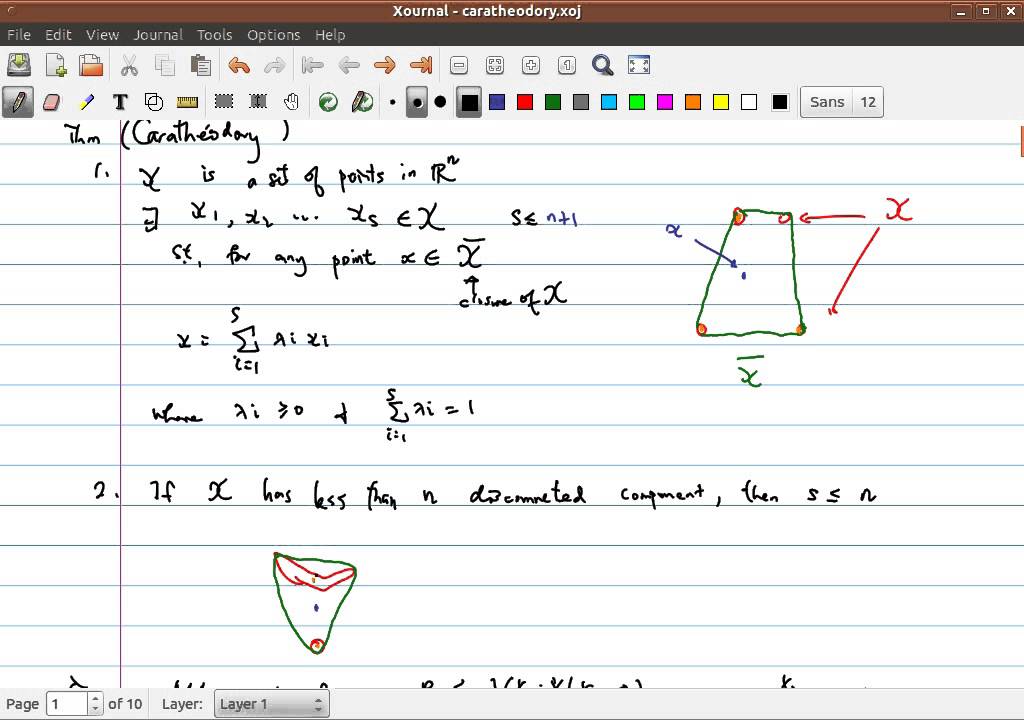 Xournal - caratheodory.xoj
File Edit View Journal Tools Options Help
Sans 12
Thm (Caratheodory)
1. X is a set of points in ℝⁿ
∃ x₁, x₂ ... xₛ ∈ X   s ≤ n+1
st. for any point x ∈ X̅
closure of X
x = Σᵢ₌₁ˢ λi xi
where λi ≥ 0 & Σᵢ₌₁ˢ λi = 1
x
X
X̅
2. If X has less than n disconnected component, then s ≤ n
Page 1 of 10 Layer: Layer 1